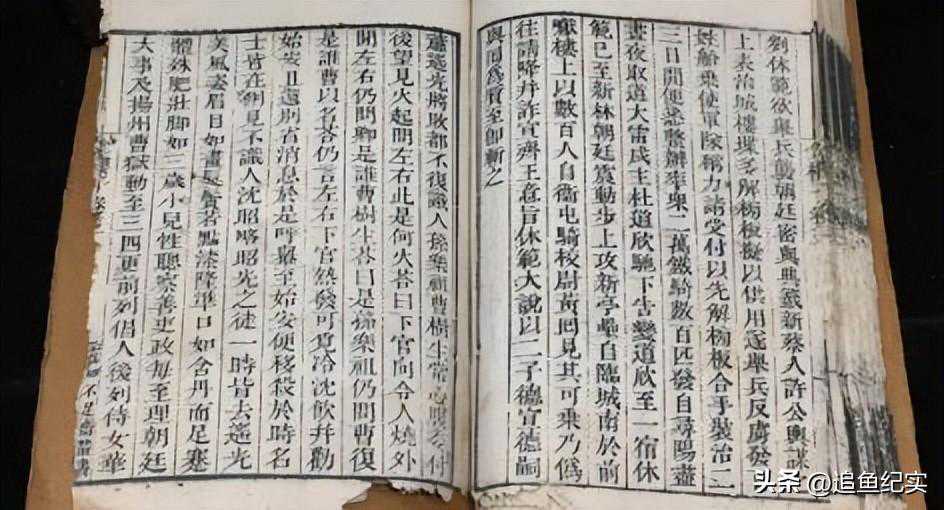 劉休範欲舉兵動朝廷密與典籤新蔡人許公輿謀
上表治城樓堞多解榜板擬以供用遂舉兵反虜發
船乘使軍隊稱力請受付以先解榜板合手裝治二
三日間便悉整辦率眾二萬鐵騎數百匹發自尋陽盡
晝夜取道大雷戍主杜道欣馳下告變道欣至一宿休
範已至新林朝廷震動步上攻新亭壘自臨城南於前
樓上以數百人自衞屯騎校尉黃回見其可乘乃僞
往請降并詐宣齊王意旨休範大說以二子德宣德嗣
與回為質至即斬之
蕭遙光將敗都不復識人孫樂祖曹樹生常
後望見火起問左右此是何火荅曰下官向令人燒外
問左右仍問卿是誰曹樹生荅曰是孫樂祖仍問曹復
是誰曹以名荅仍言左右下官熱發可冷沈飲并勸
始安且還別省消息於是呼輿至始安便移殺於時名
士皆在朔見不識人沈昭略昭光之徒一時皆去遙光
美風姿眉目如畫點漆隆準口如含丹而足蹇
體殊肥壯腳如三歲小兒性聰察善吏政每至理朝廷
大事及揚州曹獄動至三四更前列倡人後列侍女華
不足齋
头条 @追鱼纪实